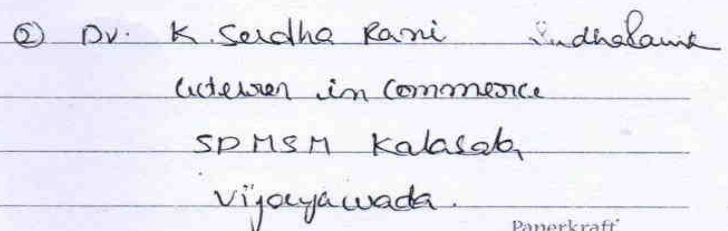 ② Dr. K. Sudha Rani
Lecturer in Commerce
SDMSM Kalasala,
Vijayawada.
Paperkraft